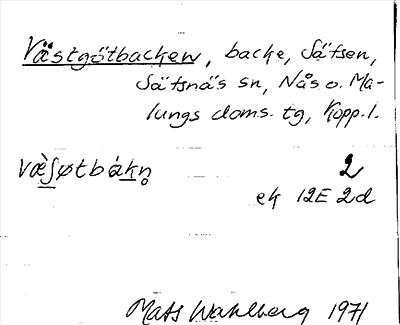 Västgötbacken, backe, Sätsen,
Sätsnäs sn, Nås o. Ma-
lungs doms. tg, Kopp. l.
væ̀ʃøtbákn̥ 2
ek 12E 2d
Mats Wahlberg 1971